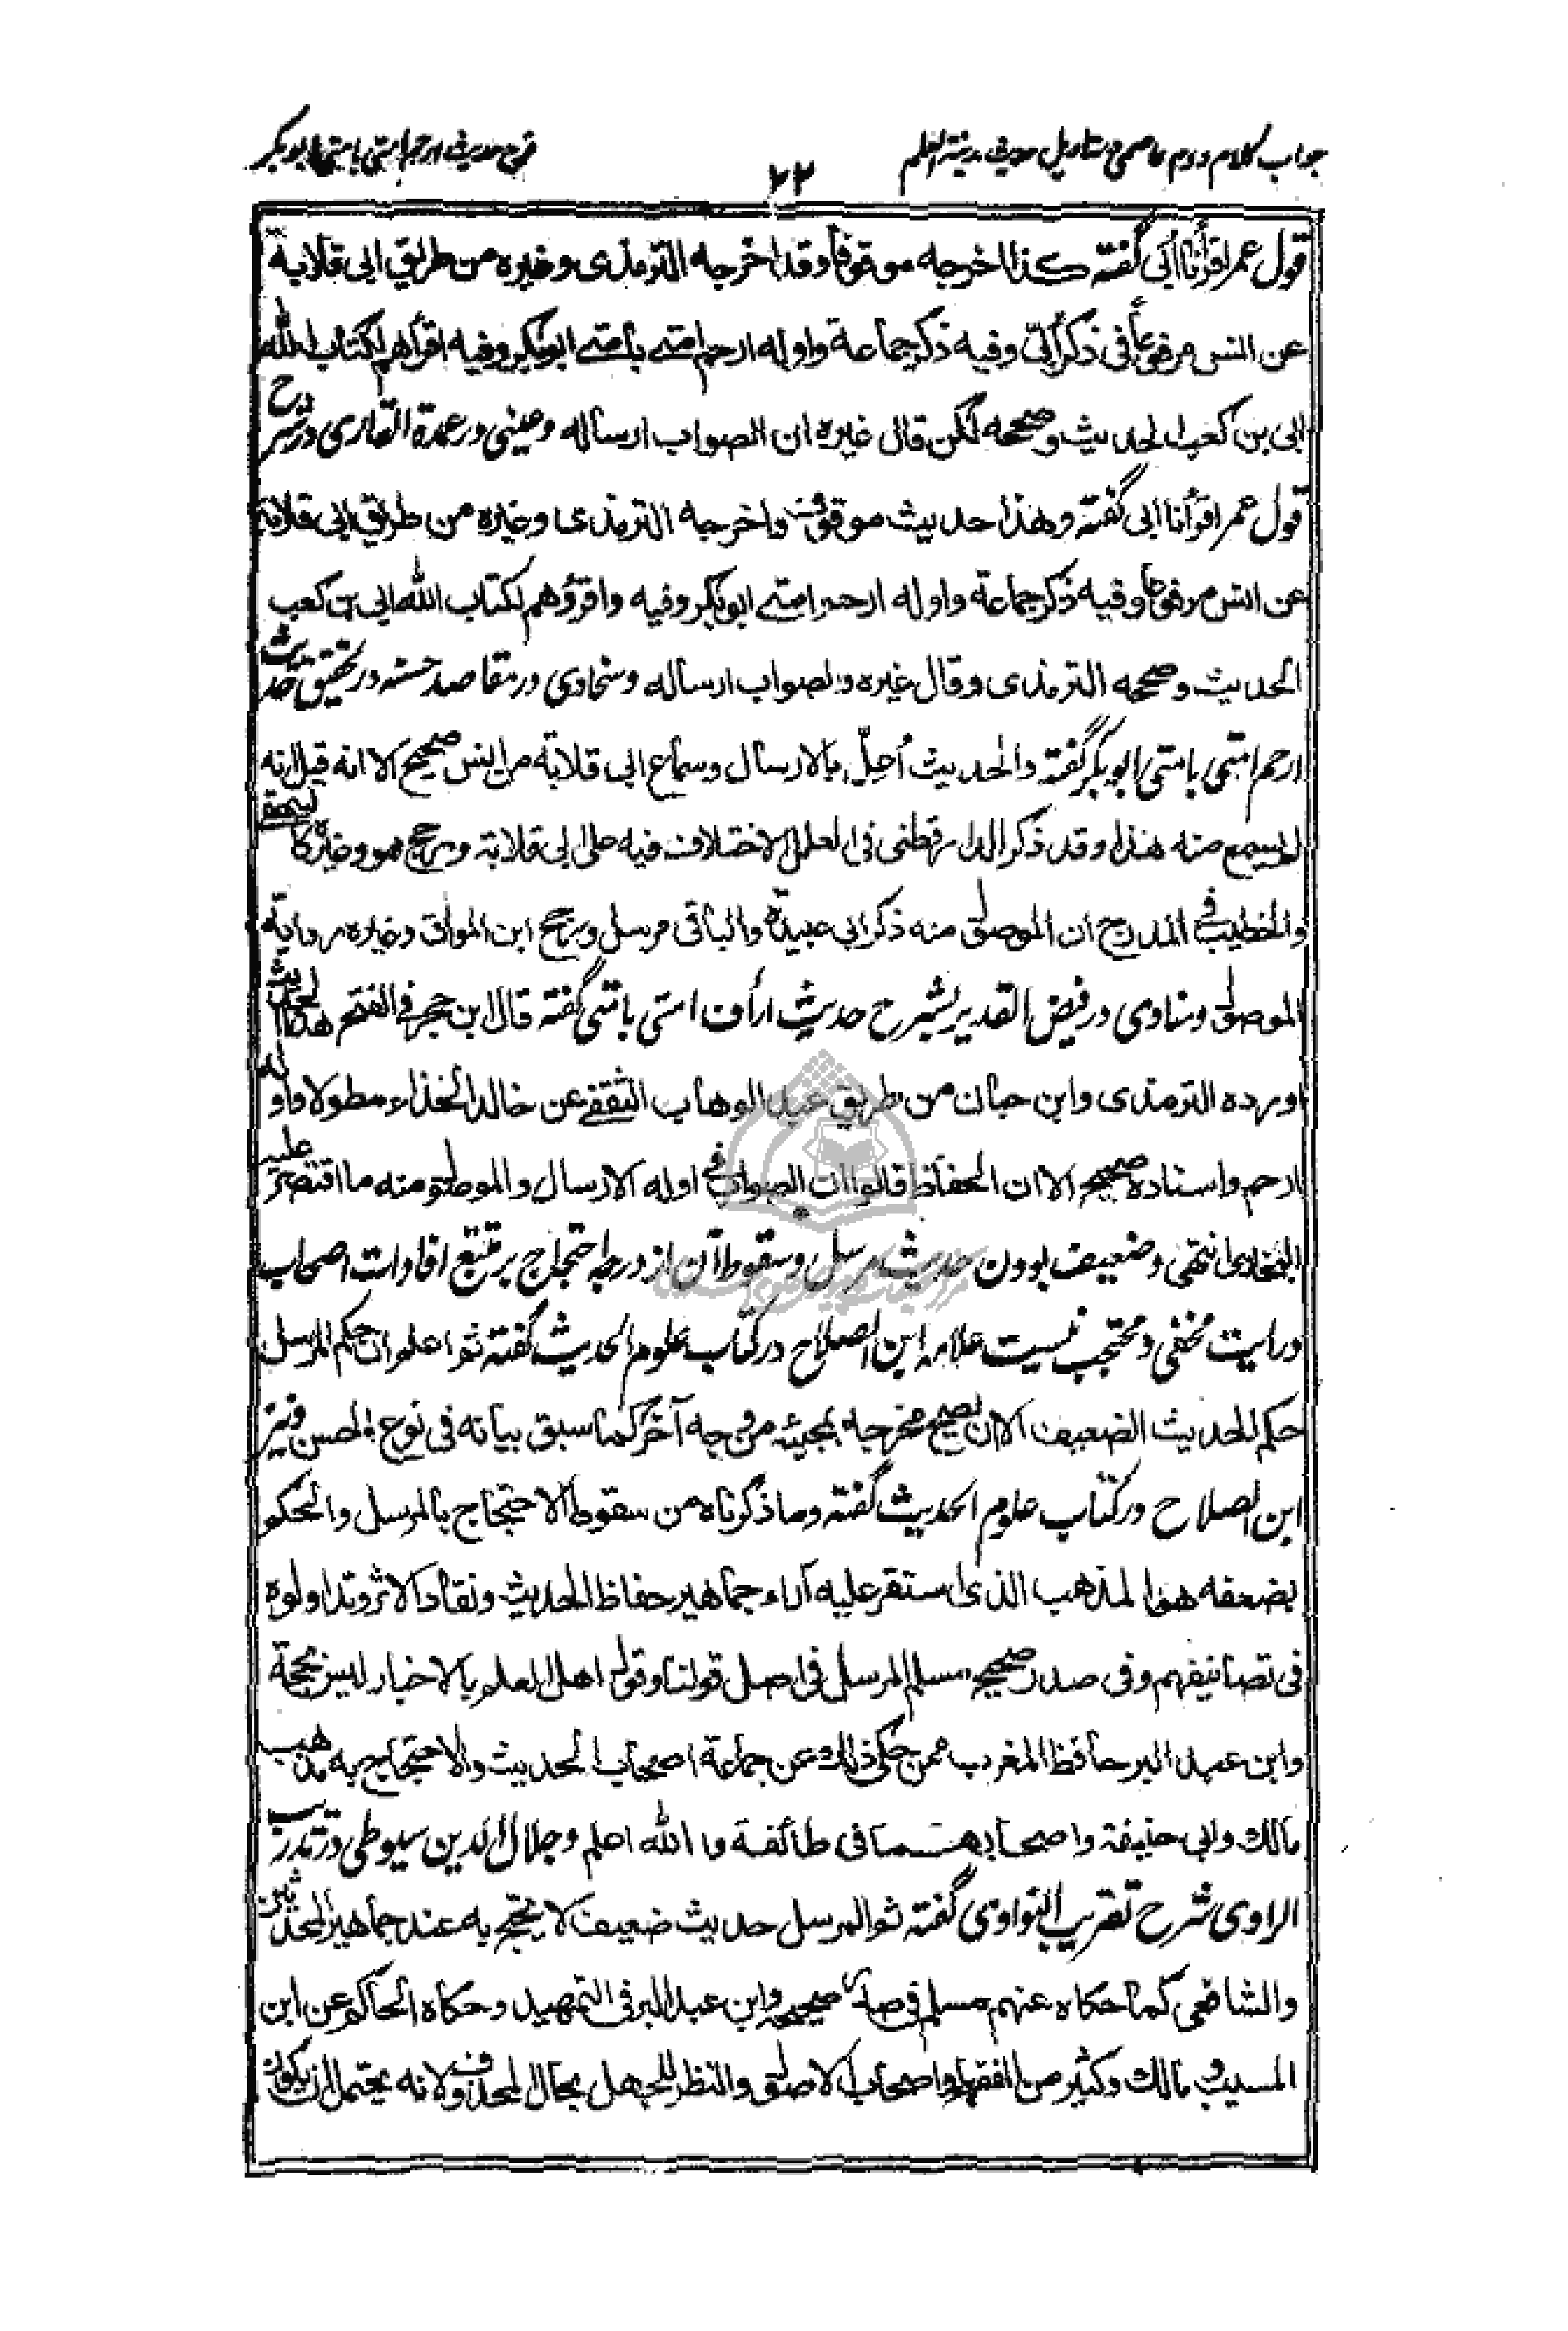 جواب کلام دوم عاصمی بتاویل حدیث مدینة العلم
۲۲
قدح حدیث ارحم امتی بامتی ابوبکر
قول عمر اقرأنا أُبی گفته کذا اخرجه موقوفا وقد اخرجه الترمذی وغیره من طریق ابی قلابة
عن انس مرفوعاً فی ذکر أُبیّ وفیه ذکر جماعة واوله ارحم امتی بامتی ابوبکر وفیه اقرأهم لکتاب الله
ابی بن کعب الحدیث وصححه لکن قال غیره ان الصواب ارساله وعینی در عمدة القاری در شرح
قول عمر اقرأنا ابی گفته وهذا حدیث موقوف واخرجه الترمذی وغیره من طریق ابی قلابة
عن انس مرفوعا وفیه ذکر جماعة واوله ارحم امتی ابوبکر وفیه واقرؤهم لکتاب الله ابی بن کعب
الحدیث وصححه الترمذی وقال غیره والصواب ارساله وسخاوی در مقاصد حسنه در تحقیق حدیث
ارحم امتی بامتی ابوبکر گفته والحدیث أُعِلّ بالارسال وسماع ابی قلابة من انس صحیح الا انه قیل انه
لم یسمع منه هذا وقد ذکر الدارقطنی فی العلل الاختلاف فیه علی ابی قلابة ورجح هو وغیره کالبیهقی
والخطیب فی المدرج ان الموصول منه ذکر ابی عبیدة والباقی مرسل ورجح ابن المواق وغیره روایة
الموصول ومناوی در فیض القدیر بشرح حدیث ارأف امتی بامتی گفته قال ابن حجر فی الفتح هذا الحدیث
اورده الترمذی وابن حبان من طریق عبد الوهاب الثقفی عن خالد الحذاء مطولا واوله
ارحم واسناده صحیح الا ان الحفاظ قالوا ان الصواب فی اوله الارسال والموصول منه ما اقتصر علیه
البخاری انتهی وضعیف بودن حدیث مرسل وسقوط آن از درجه احتجاج بر متتبع افادات اصحاب
درایت مخفی ومحتجب نیست علامه ابن الصلاح در کتاب علوم الحدیث گفته ثم اعلم ان حکم المرسل
حکم الحدیث الضعیف الا ان یصح مخرجه بمجیئه من وجه آخر کما سبق بیانه فی نوع الحسن ونیز
ابن الصلاح در کتاب علوم الحدیث گفته وما ذکرناه من سقوط الاحتجاج بالمرسل والحکم
بضعفه هو المذهب الذی استقر علیه آراء جماهیر حفاظ الحدیث ونقاد الاثر وتداولوه
فی تصانیفهم وفی صدر صحیح مسلم المرسل فی اصل قولنا وقول اهل العلم بالاخبار لیس بحجة
وابن عبد البر حافظ المغرب ممن حکی ذلک عن جماعة اصحاب الحدیث والاحتجاج به مذهب
مالک وابی حنیفة واصحابهما فی طائفة والله اعلم وجلال الدین سیوطی در تدریب
الراوی شرح تقریب النواوی گفته ثم المرسل حدیث ضعیف لا یحتج به عند جماهیر المحدثین
والشافعی کما حکاه عنهم مسلم فی صدر صحیحه وابن عبد البر فی التمهید وحکاه الحاکم عن ابن
المسیب ومالک وکثیر من الفقهاء واصحاب الاصول والنظر للجهل بحال المحذوف ولانه یحتمل ان یکون